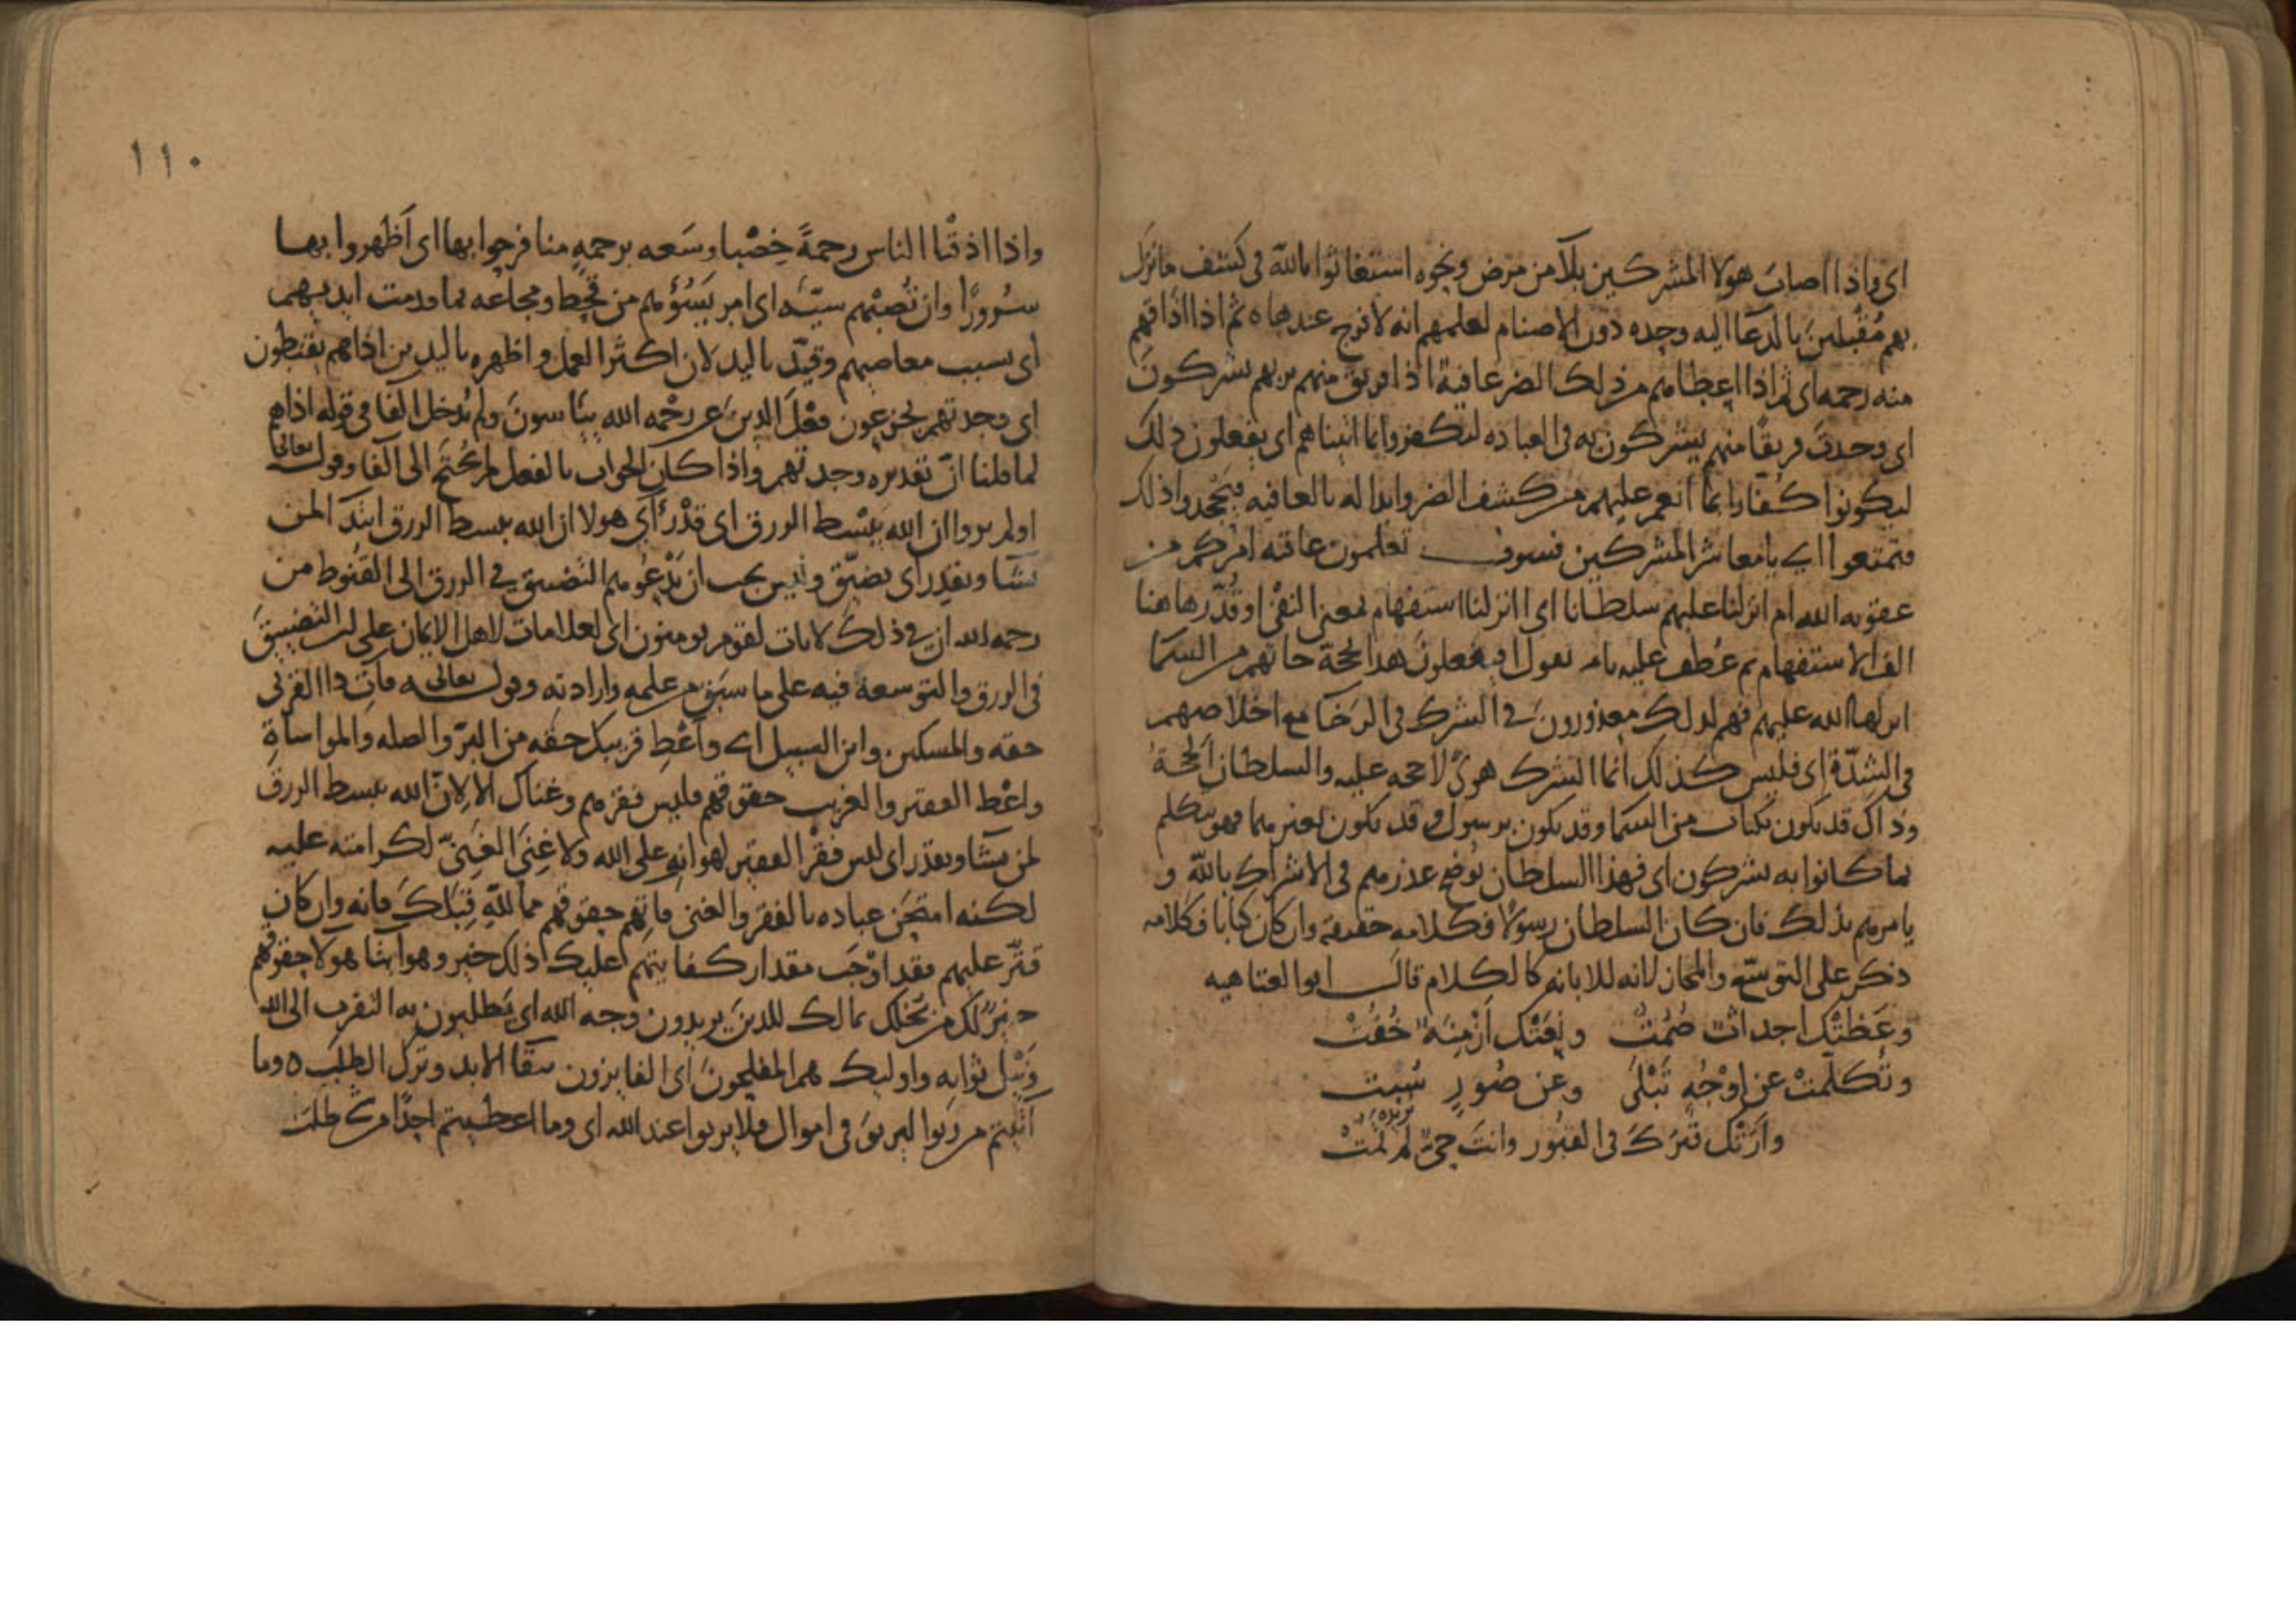 اى واذا اصاب هولا المشركين بلآ من مرض ونحوه استغاثوا بالله فى كشف ما نزل
بهم مُقبلين بالدعا اليه وحده دون الاصنام لعلمهم انه لا فرج عندها ه ثم اذا اذاقهم
منه رحمه اى ثم اذا اعطاهم من ذلك الضر عافية اذا فريق منهم بربهم يشركونَ
اى وجدتَ فريقًا منهم يشركون به فى العباده ليكفروا بما اتيناهم اى يفعلون ذلك
ليكونوا كفارا بما انعم عليهم من كشف الضر وابداله بالعافيه فيَجْحدوا ذلك
فتمتعوا اى يا معاشر المشركين فسوف تعلمون عاقبه امركم من
عقوبه الله ام انزلنا عليهم سلطانا اى اانزلنا استفهام بمعنى النفْى وقُدّر هاهنا
الف الاستفهام ثم عُطف عليه بام يقول ايفعلونَ هذا لحجة جاتهم من السما
انزلها الله عليهم فهم لذلك معذورونَ فى الشرك فى الرَخَا مع اخلاصهم
فى الشِدّة اى فليس كذلك انما الشرك هوىً لا حجه عليه والسلطان الحجةُ
وذاك قد يكون بكتاب من السما وقد يكون برسول وقد يكون بغيرهما فهو يتكلم
بما كانوا به يشركون اى فهذا السلطان يُوضح عذرهم فى الاشراك بالله و
يامرهم بذلك فان كان السلطان رسولًا فكلامه حقيقه وان كان كتابا فكلامه
ذكر على التوسّع والمجاز لانه للابانه كالكلام قالَ ابو العتاهيه
وعَظتْك اجداثٌ صُمُتْ ونعَتْك اَزْمِنَةٌ خُفُتْ
وتُكلّمتْ عن اَوْجُهٍ تَبْلَى وعن صُورٍ سُبِت
وارَتْك قَبْرَكَ فى القبُور وانتَ حىّ لم تمُتْ
١١٠
واذا اذقْنا الناس رحمةً خِصْبا وسَعه برحمهٍ منا فرحوا بها اى اَظهروا بها
سُرورًا وان تُصبْهم سيّئه اى امر يَسُؤهم من قحط ومجاعه بما قدمت ايديهم
اى بسبب معاصيهم وقيّد باليد لان اكثر العمل واظهره باليد من اذا هم يقنطون
اى وجدتهم يجزعون فعْلَ الذين عن رحْمه الله يئاسونَ ولم يُدخل الفا فى قوله اذا هم
لما قلنا انّ تقديره وجدتهم واذا كان الجواب بالفعل لم يُحتَج الى الفا وقوله تعالى
اولم يروا ان الله يبْسُط الرزق اى قدْ رَأى هولا ان الله يبسط الرزق ابتدآ لمن
يشا ويقدِر اى يضيّق وليس يجب ان يَدْعُوهم التضييق فى الرزق الى القُنوط من
رحمه الله ان فى ذلك لايات لقوم يومنون اى لعلامات لاهل الايمان على ان التضييقَ
فى الرزق والتوسعة فيه على ما سبَق من علمه وارادته وقوله تعالى فآتِ ذا القربى
حقه والمسكين وابن السبيل اى واَعْطِ قريبك حقه من البرّ والصله والمواساةِ
واعْط الفقير والغريب حقوقهم فليس فقرهم وغناك الا لانّ الله يبسط الرزق
لمن يشا ويقدر اى ليس فقْر الفقير لهوانِهِ على الله ولا غِنَى الغَنِىّ لكرامته عليه
لكنه امتحَن عباده بالفقر والغنى فآتهم حقوقهم مما للهِ قِبَلكَ فانه وان كان
قتّر عليهم فقد اوْجَب مقدار كفايتهم عليك ذلك خير وهو ايتا هولا حقوقهم
خيرٌ لك من بُخلك بمالك للذينَ يريدون وجه الله اى يَطلبون به التقرب الى الله
ونَيْل ثوابه واوليك هم المفلحونَ اى الفايزون ببقا الابد ودَرَك الطلَب ه وما
آتيتم من ربًوا ليربوَ فى اموال فلا يربوا عند الله اى وما اعطيتم احدًا من طلب